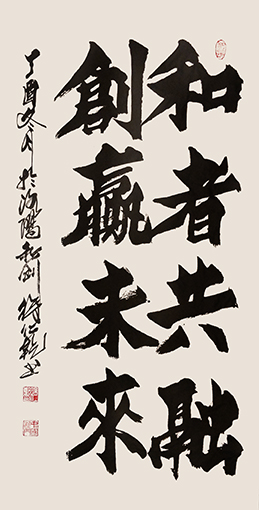 和者共融
創贏未來
丁酉冬月於沈陽和創